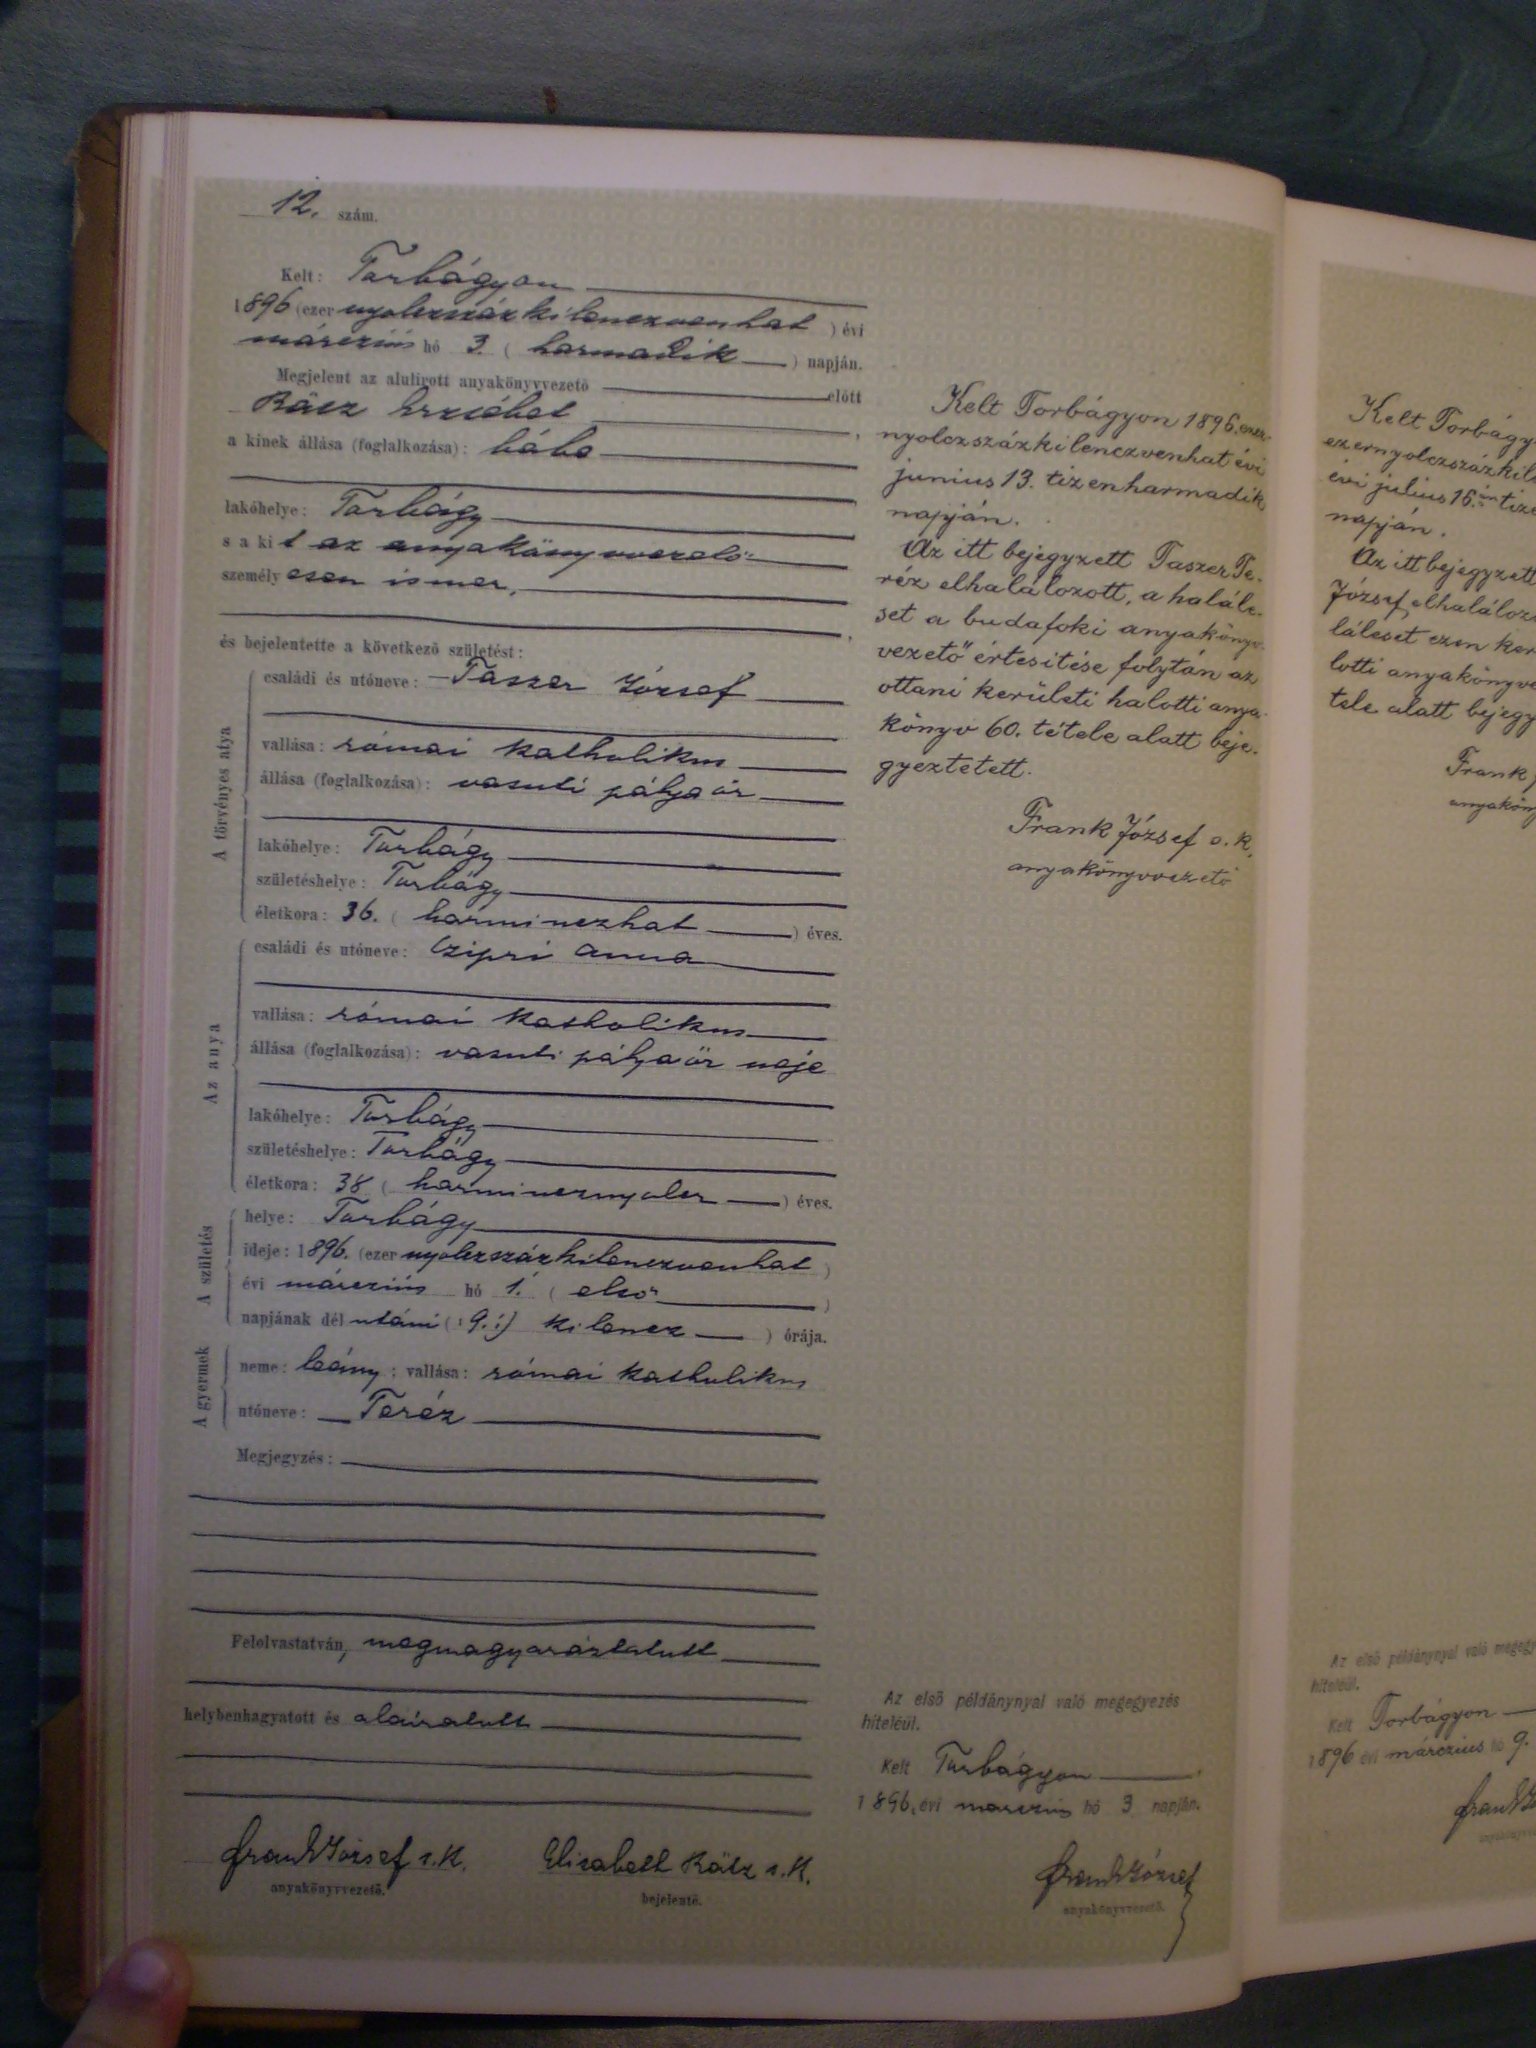 12. szám.
Kelt: Torbágyon
1896 (ezer nyolczszázkilenczvenhat) évi
márczius hó 3. (harmadik) napján.
Megjelent az alulirott anyakönyvvezető előtt
Rätz Erzsébet,
a kinek állása (foglalkozása): bába
lakóhelye: Torbágy
s a kit az anyakönyvvezető
személyesen ismer,
és bejelentette a következő születést:
A törvényes atya
családi és utóneve: Taszer József
vallása: római katholikus
állása (foglalkozása): vasuti pályaőr
lakóhelye: Torbágy
születéshelye: Torbágy
életkora: 36. (harminczhat) éves.
Az anya
családi és utóneve: Czipri Anna
vallása: római katholikus
állása (foglalkozása): vasuti pályaőr neje
lakóhelye: Torbágy
születéshelye: Torbágy
életkora: 38 (harmincznyolcz) éves.
A születés
helye: Torbágy
ideje: 1896. (ezer nyolczszázkilenczvenhat)
évi márczius hó 1. (első)
napjának dél utáni (:9.:) kilencz) órája.
A gyermek
neme: leány; vallása: római katholikus
utóneve: Teréz
Megjegyzés:
Felolvastatván, megmagyaráztatott
helybenhagyatott és aláiratott
Frank József s. k.
anyakönyvvezető.
Elisabeth Rätz s. k.
bejelentő.
Kelt Torbágyon 1896. ezer-
nyolczszázkilenczvenhat évi
junius 13. tizenharmadik
napján.
Az itt bejegyzett Taszer Te-
réz elhalálozott, a halále-
set a budafoki anyakönyv-
vezető értesitése folytán az
ottani kerületi halotti anya-
könyv 60. tétele alatt beje-
gyeztetett.
Frank József s. k.
anyakönyvvezető
Az első példánynyal való megegyezés
hiteléül.
Kelt Torbágyon
1896. évi márczius hó 3 napján.
Frank József
anyakönyvvezető.
Kelt Torbágy
ezernyolczszázkil
évi julius 16.án tize
napján.
Az itt bejegyzett
József elhaláloz
láleset ezen ker
lotti anyakönyve
tele alatt bejegy
Frank
anyakön
Az első példánynyal való megegy
hiteléül.
Kelt Torbágyon
1896 évi márczius hó 9.
Frank Jó